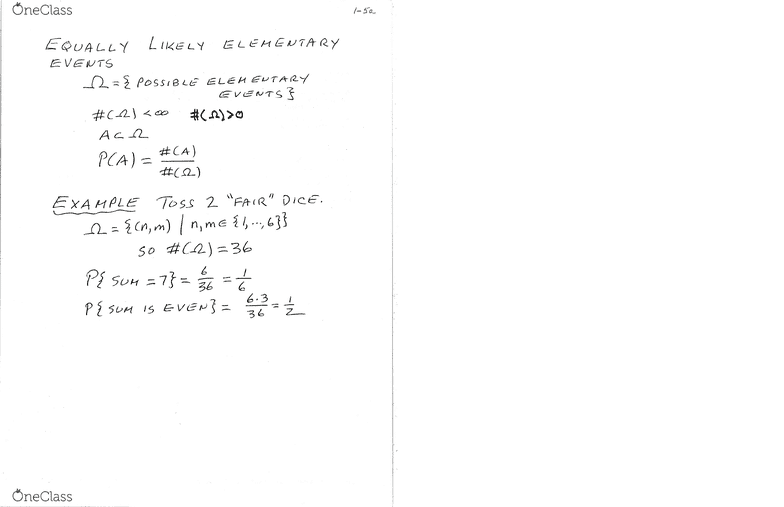 OneClass
1-5a
EQUALLY LIKELY ELEMENTARY
EVENTS
Ω = { POSSIBLE ELEMENTARY
EVENTS }
#(Ω) < ∞ #(Ω) > 0
A ⊂ Ω
P(A) = #(A) / #(Ω)
EXAMPLE TOSS 2 "FAIR" DICE.
Ω = {(n,m) | n,m ∈ {1,...,6}}
SO #(Ω) = 36
P{ SUM = 7} = 6/36 = 1/6
P{ SUM IS EVEN} = 6·3/36 = 1/2
OneClass